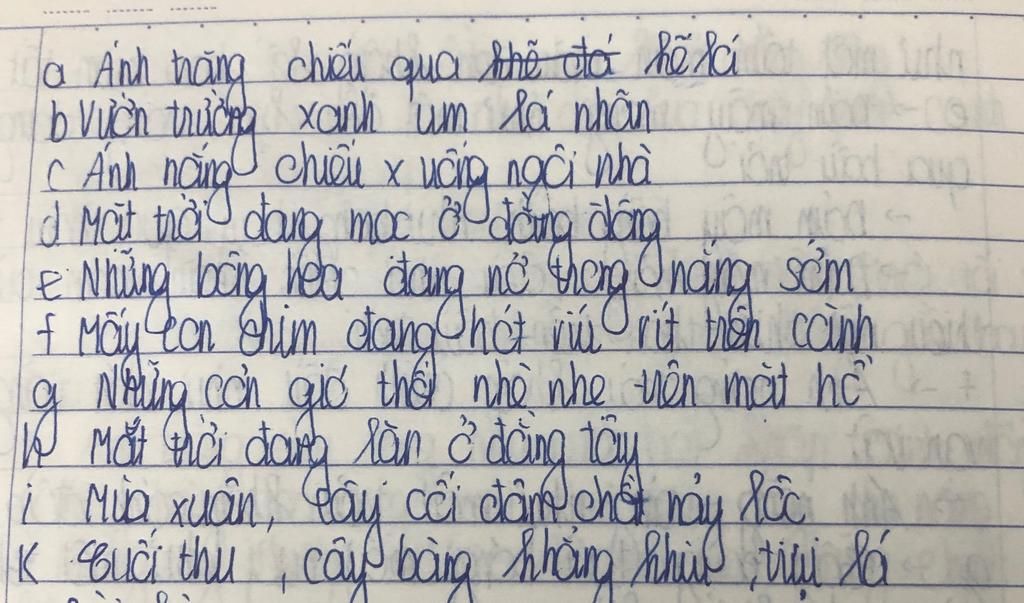 a Ánh trăng chiếu qua khẽ đá kẽ lá
b Vườn trường xanh um lá nhãn
c Ánh nắng chiếu xuống ngôi nhà
d Mặt trời đang mọc ở đằng đông
e Những bông hoa đang nở trong nắng sớm
f Mấy con chim đang hót ríu rít trên cành
g Những cơn gió thổi nhè nhẹ trên mặt hồ
h Mặt trời đang lặn ở đằng tây
i Mùa xuân, cây cối đâm chồi nảy lộc
K Cuối thu, cây bàng khẳng khiu, trụi lá